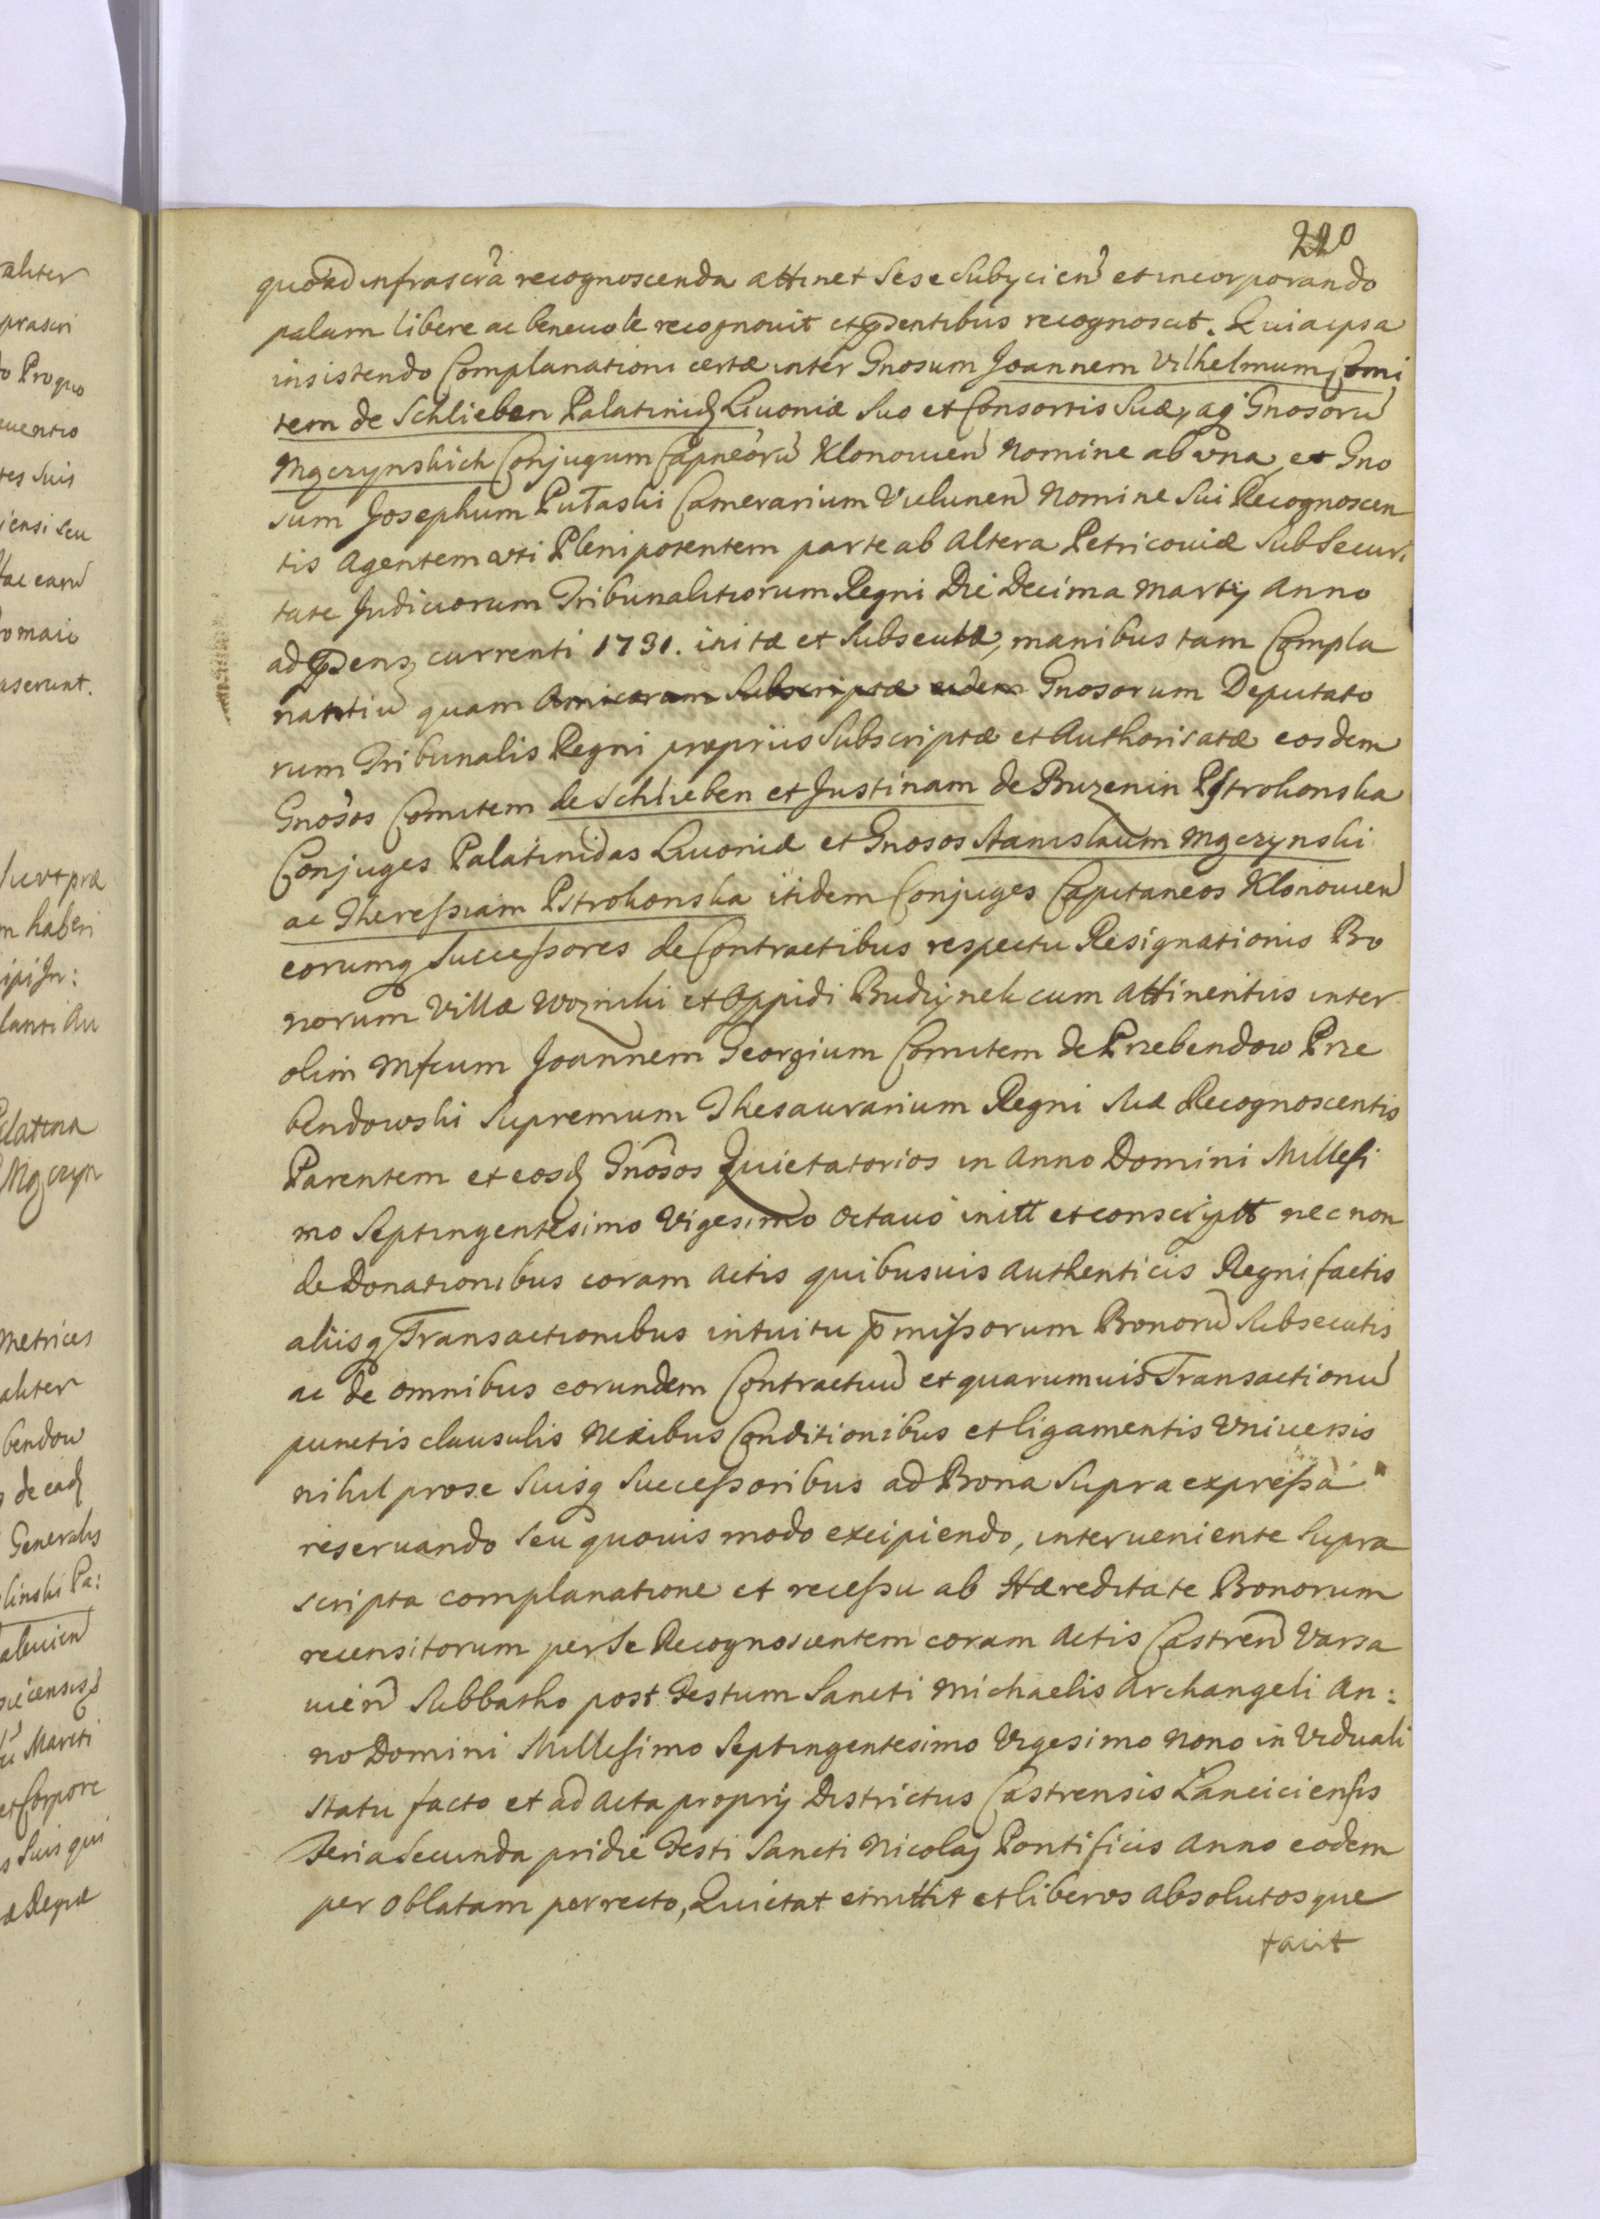 220
quoad infrascrã recognoscenda attinet Sese Subycien et incorporando
palam libere ac beneuole recognouit et pdentibus recognoscit. Quia ipsa
insistendo Complanationi certæ inter Gnosum Joannem Vilhelmum Comi
tem de Schlieben Palatinid Liuoniæ Suo et Consortis Suæ, aq Gnosoru
Mączynskich Conjugum Capneoru Klonouien Nomine ab vna, et Gno
sum Josephum Pułaski Camerarium Vielunen Nomine Sui Recognoscen
tis Agentem vti Plenipotentem parte ab altera Petricouiæ Sub Securi
tate Judiciorum Tribunalitiorum Regni Die Decima Martij Anno
ad pdens currenti 1731. initæ et Subsecutæ, manibus tam Compla
nantiu quam Amicorum Subscriptæ eidem Gnosorum Deputato
rum Tribunalis Regni propriis Subscriptæ et Authorisatæ eosdem
Gnosos Comitem de Schlieben et Justinam de Buzenin Pstrokonska
Conjuges Palatinidas Liuoniæ et Gnosos Stanislaum Mączynski
ac Theressiam Pstrokonska itidem Conjuges Capitaneos Klonouien
eorumq Successores de Contractibus respectu Resignationis Bo
norum Villæ Wozniki et Oppidi Budzynek cum Attinentiis inter
olim Mfcum Joannem Georgium Comitem de Przebendow Prze
bendowski Supremum Thesaurarium Regni Suæ Recognoscentis
Parentem et eosd Gnosos Quietatorios in Anno Domini Millesi
mo Septingentesimo Vigesimo Octauo initt et conscriptt nec non
de Donationibus coram Actis quibusuis Authenticis Regni factis
aliisq Transactionibus intuitu pmissorum Bonoru Subsecutis
ac de omnibus eorundem Contractuu et quarumuis Transactionu
punctis clausulis Nexibus Conditionibus et ligamentis Vniuersis
nihil pro se Suisq Successoribus ad Bona Supra expressa
reseruando Seu quouis modo excipiendo, interueniente Supra
scripta complanatione et recessu ab Hæreditate Bonorum
recensitorum per Se Recognoscentem coram Actis Castren Varsa
uien Sabbatho post Festum Sancti Michaelis Archangeli An:
no Domini Millesimo Septingentesimo Vigesimo Nono in Viduali
Statu facto et ad Acta proprij Districtus Castrensis Lanciciensis
Feria Secunda pridie Festi Sancti Nicolaj Pontificis Anno eodem
per Oblatam porrecto, Quietat emittit et liberos absolutosque
facit